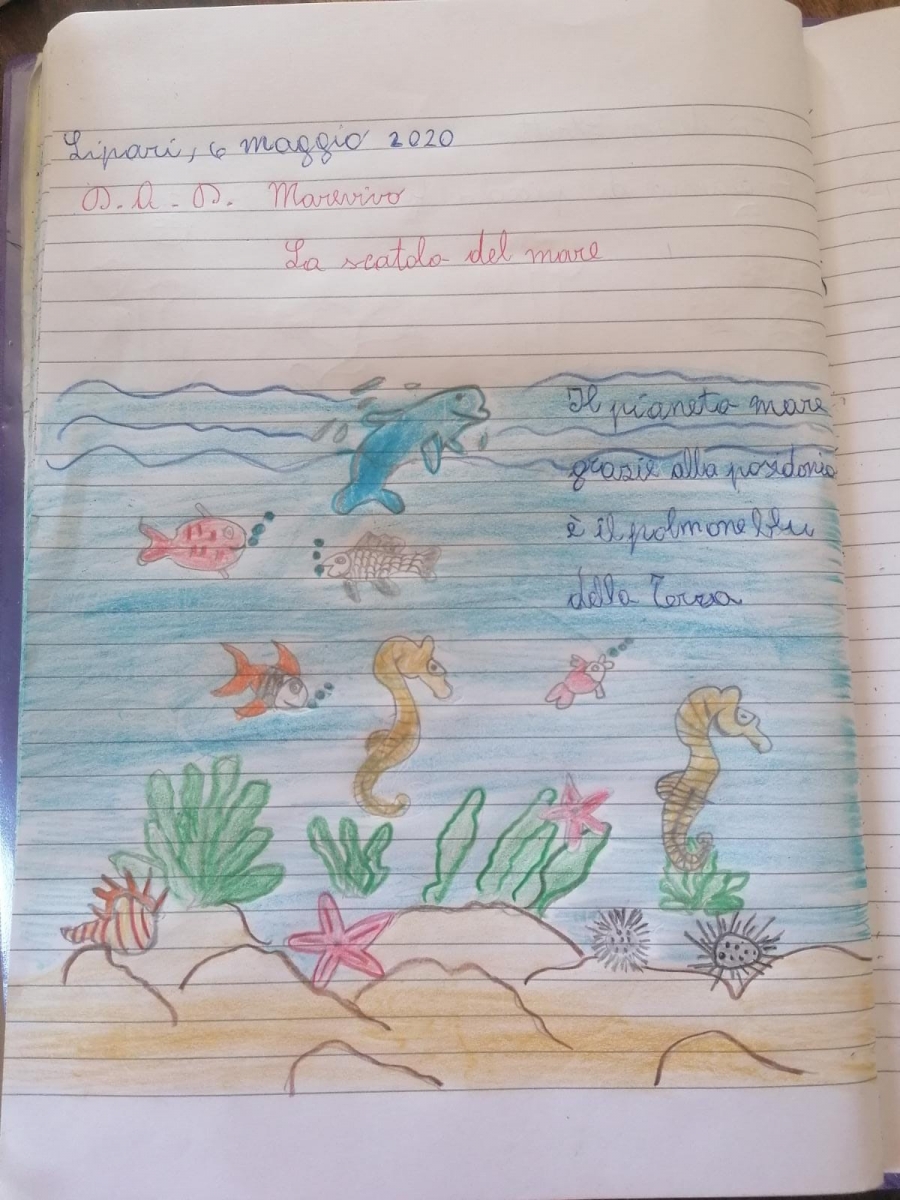 Lipari, 6 maggio 2020
D. A. D. Marevivo
La scatola del mare
Il pianeta mare
grazie alla posidonia
è il polmone blu
della Terra